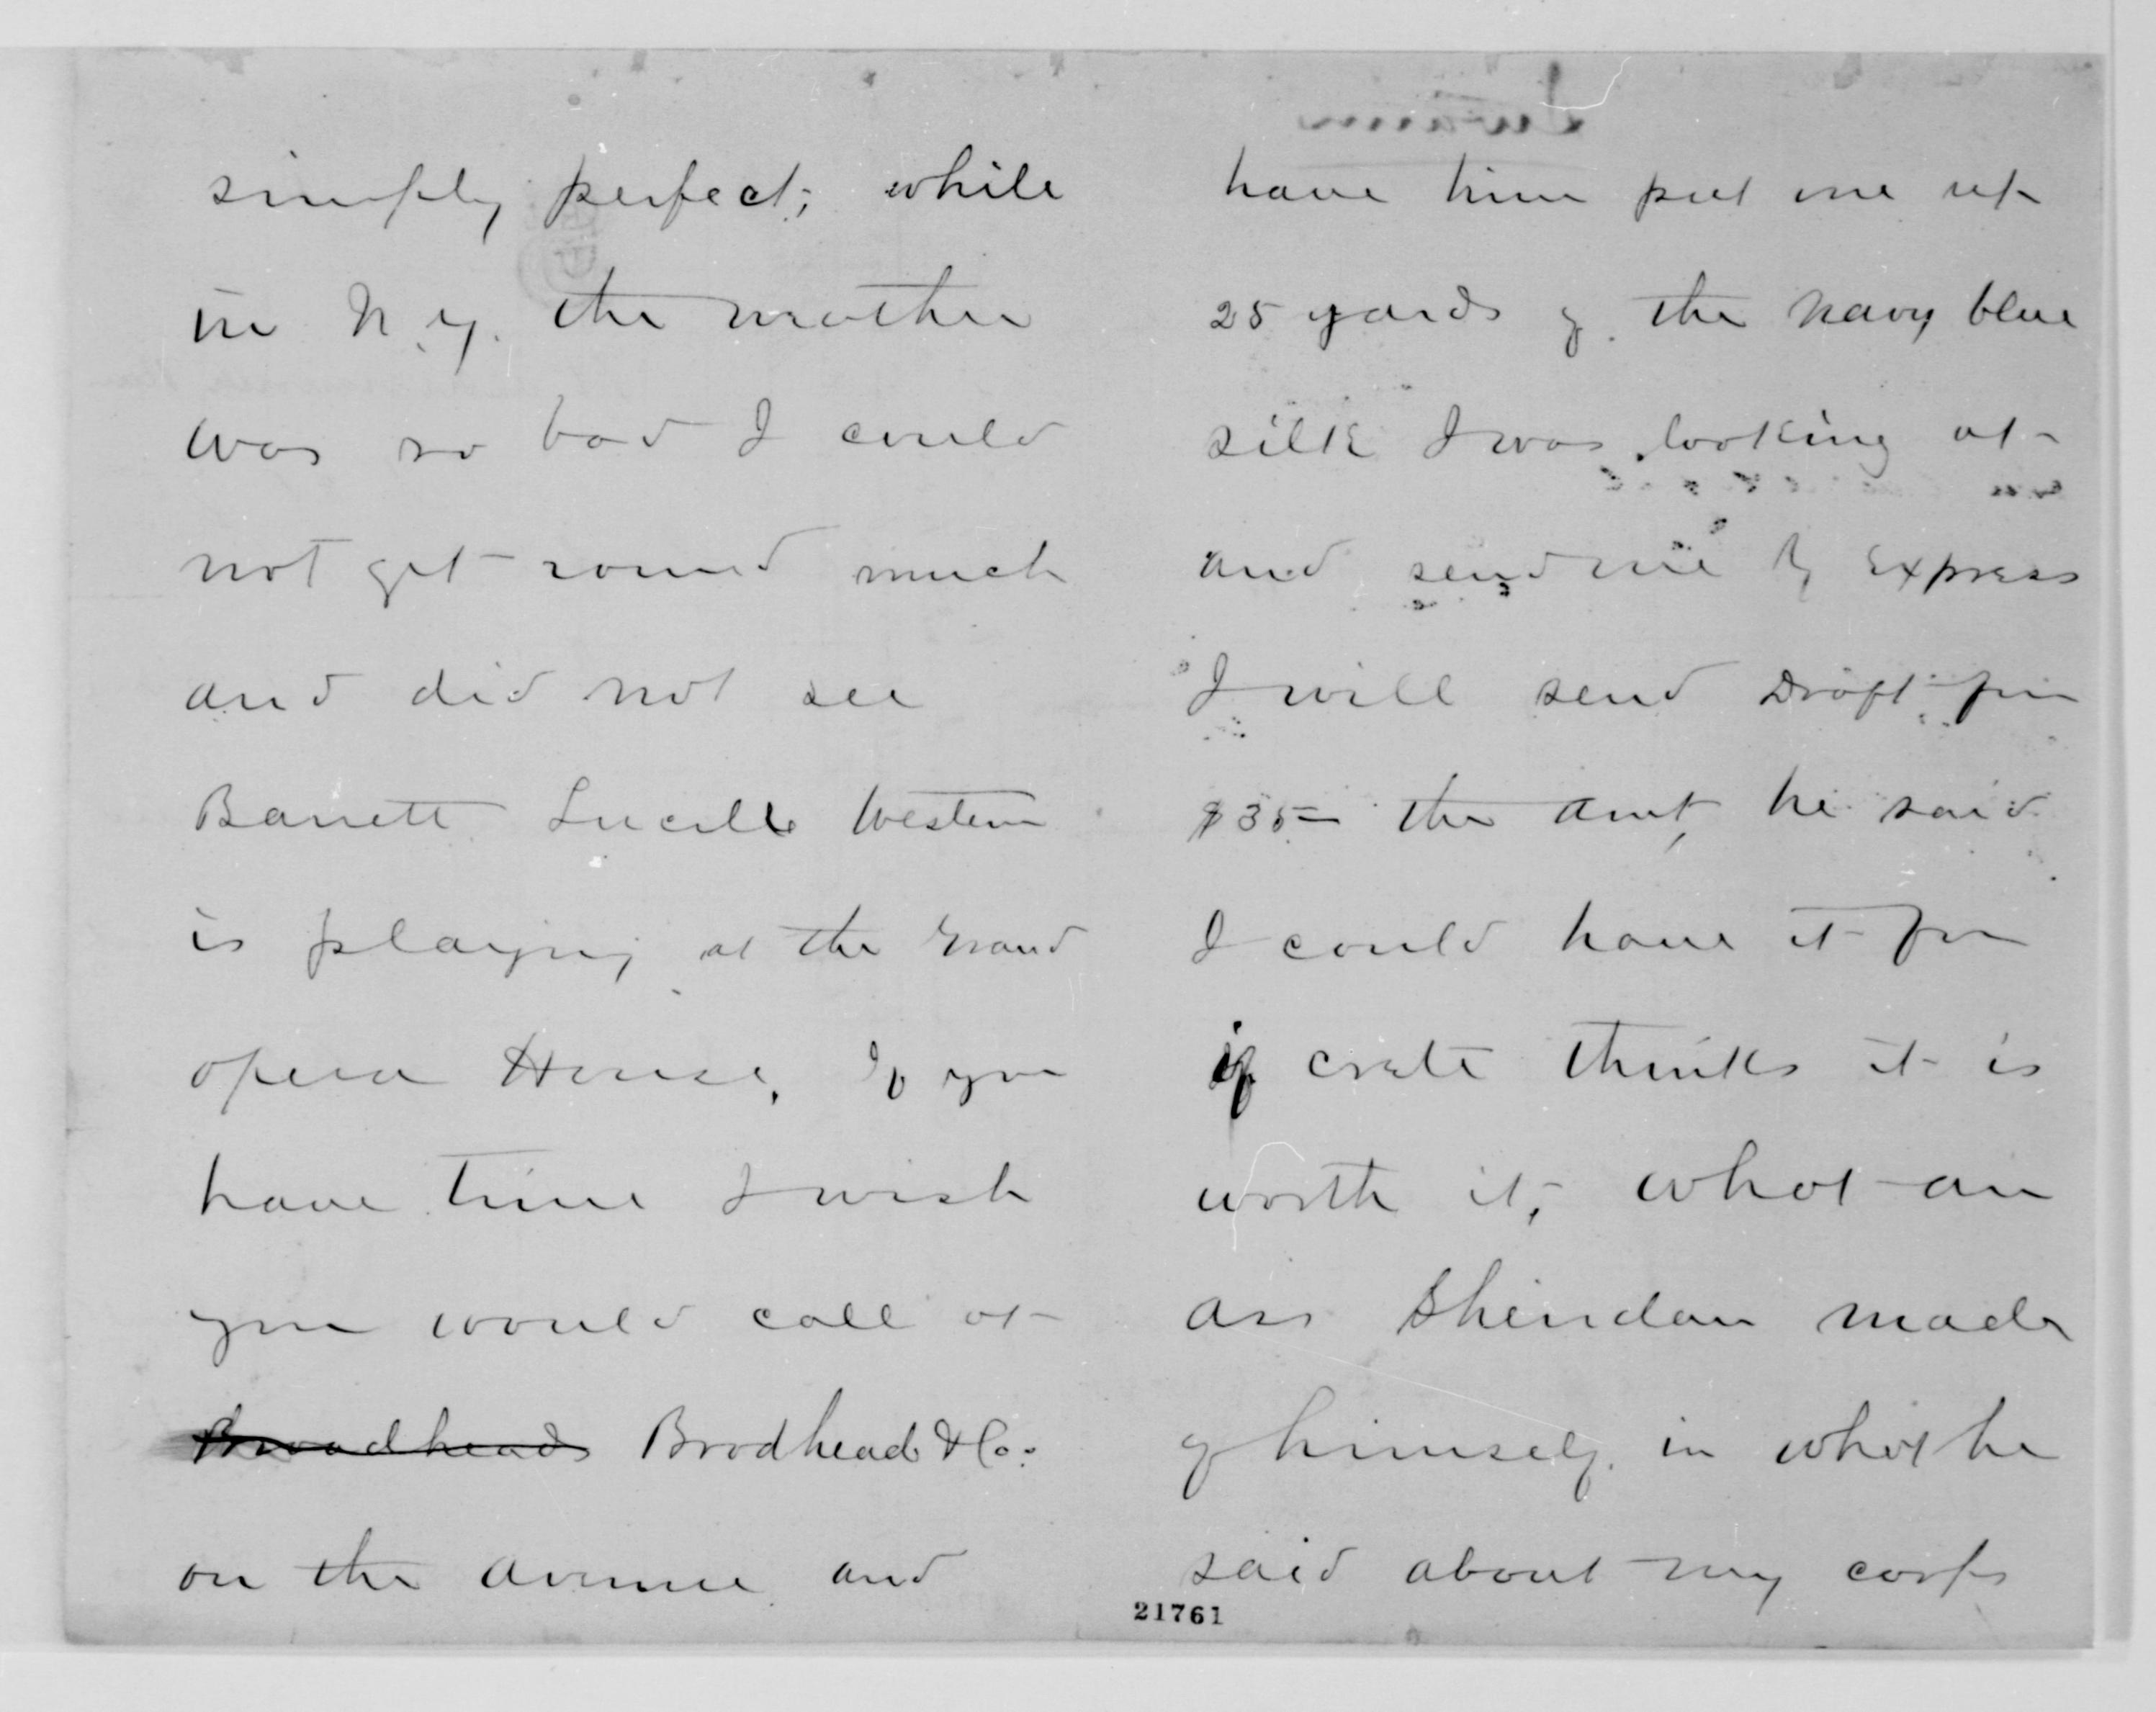 simply perfect; while
in N.y. the weather
was so bad I could
not get round much
and did not see
Barrett Lucille Western
is playing at the Grand
opera House. If you
have time I wish
you would call at
Broadheads Brodhead & Co.
on the avenue and
have him put me up
25 yards of the Navy blue
silk I was looking at
and send me by Express
I will send Draft for
$35= the amt, he said
I could have it for
if crete thinks it is
worth it, what an
ass Sheridan made
of himself in what he
said about my corps
21761